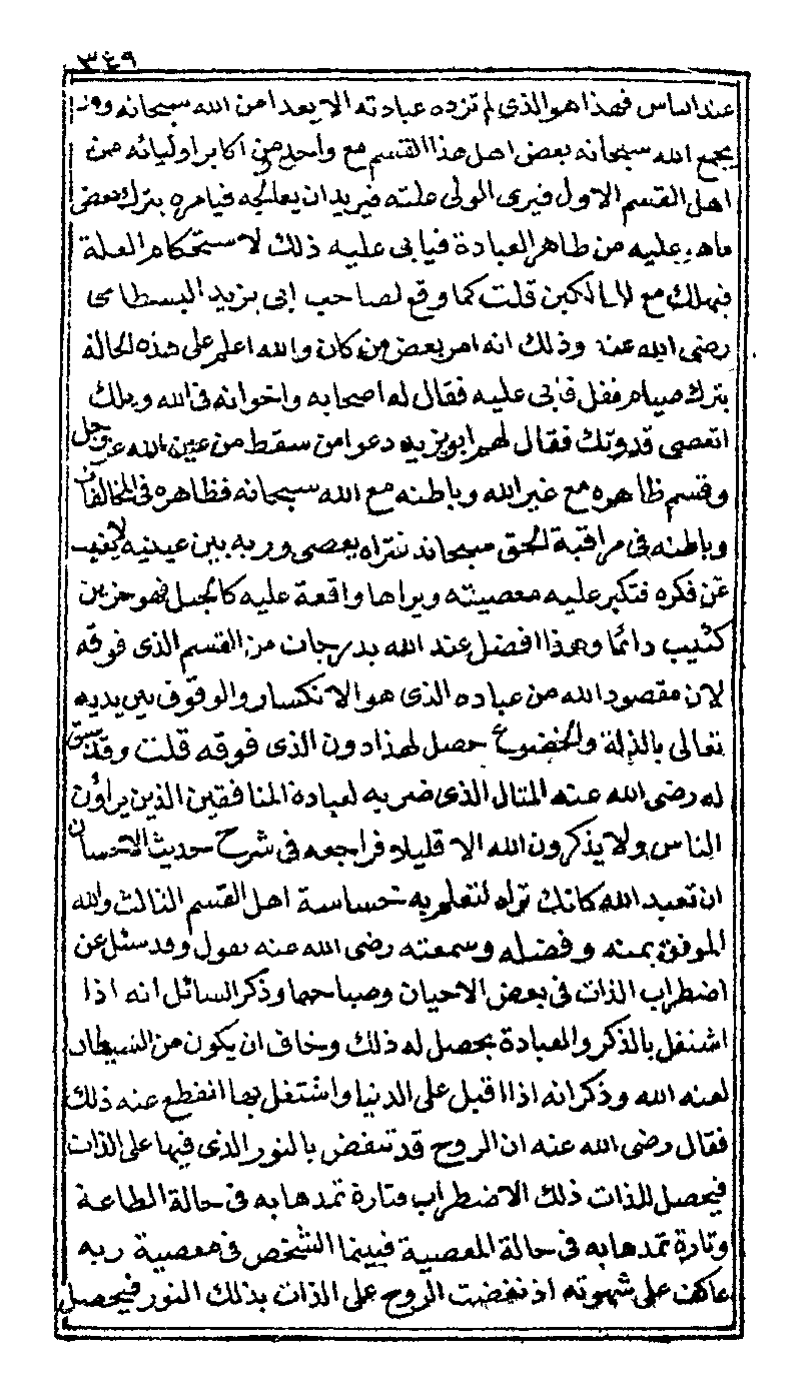 ٣٤٩
عند الناس فهذا هو الذى لم تزده عبادته الا بعدا من الله سبحانه وقد
يجمع الله سبحانه بعض اهل هذا القسم مع واحد من اكابر اوليائه من
اهل القسم الاول فيرى الولى علته فيريد ان يعالجه فيامره بترك بعض
ماهو عليه من ظاهر العبادة فيابى عليه ذلك لاستحكام العلة
فيهلك مع الهالكين قلت كما وقع لصاحب ابى يزيد البسطامى
رضى الله عنه وذلك انه امر بعض من كان والله اعلم على هذه الحالة
بترك صيام نفل فابى عليه فقال له اصحابه واخوانه فى الله ويلك
اتعصى قدوتك فقال لهم ابويزيد دعوا من سقط من عين الله عز وجل
وقسم ظاهره مع غير الله وباطنه مع الله سبحانه فظاهره فى المخالفات
وباطنه فى مراقبة الحق سبحانه فتراه يعصى وربه بين عينيه لا يغيب
عن فكره فتكبر عليه معصيته ويراها واقعة عليه كالجبل فهو حزين
كئيب دائما وهذا افضل عند الله بدرجات من القسم الذى فوقه
لان مقصود الله من عباده الذى هو الانكسار والوقوف بين يديه
تعالى بالذلة والخضوع حصل لهذا دون الذى فوقه قلت وقد سبق
له رضى الله عنه المثال الذى ضربه لعبادة المنافقين الذين يراؤن
الناس ولا يذكرون الله الا قليلا فراجعه فى شرح حديث الاحسان
ان تعبد الله كانك تراه لتعلم به خساسة اهل القسم الثالث والله
الموفق بمنه وفضله وسمعته رضى الله عنه يقول وقد سئل عن
اضطراب الذات فى بعض الاحيان وصياحها وذكر السائل انه اذا
اشتغل بالذكر والعبادة يحصل له ذلك وخاف ان يكون من الشيطان
لعنه الله وذكر انه اذا اقبل على الدنيا واشتغل بها انقطع عنه ذلك
فقال رضى الله عنه ان الروح قد تنفض بالنور الذى فيها على الذات
فيحصل للذات ذلك الاضطراب فتارة تمدها به فى حالة الطاعة
وتارة تمدها به فى حالة المعصية فبينما الشخص فى معصية ربه
عاكف على شهوته اذ نفضت الروح على الذات بذلك النور فيحصل